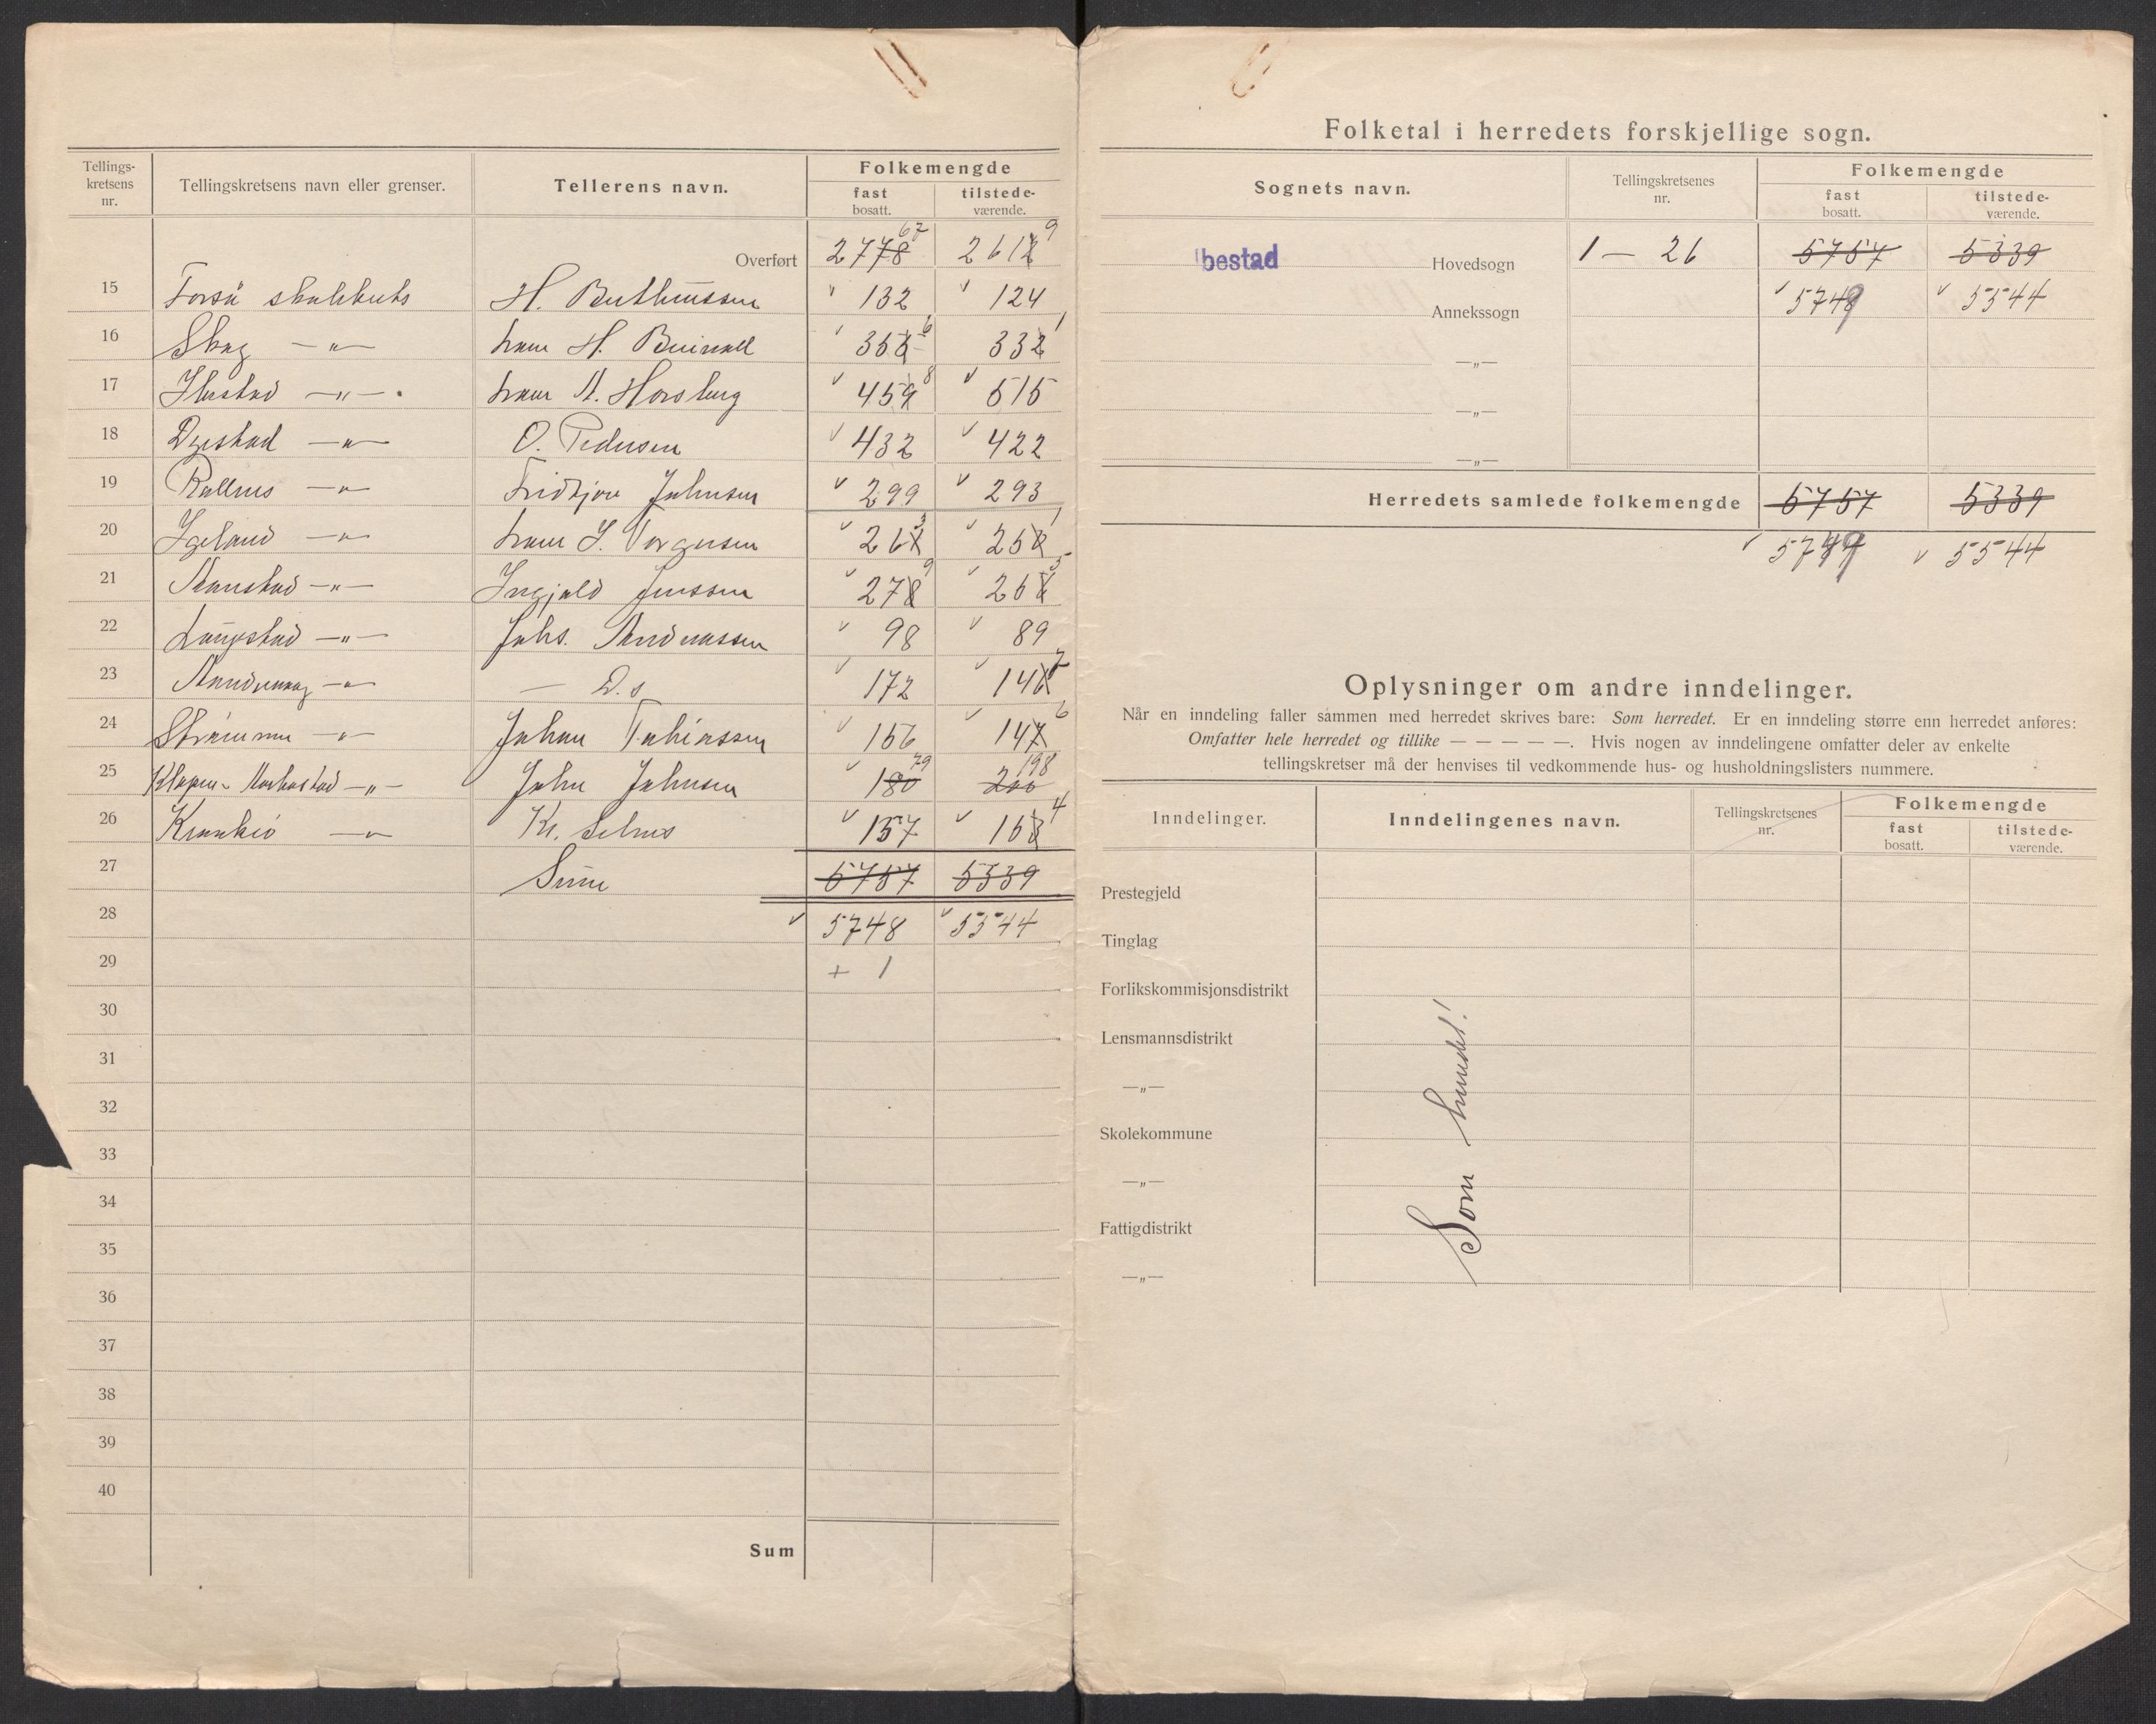 Tellings-kretsens nr. Tellingskretsens navn eller grenser. Tellerens navn. Folkemengde
fast bosatt. tilstede-værende.
Overført 2778 67 2612 9
15 Forså skolekrets H. Berthinssen 132 124
16 Skog — " — 356 332 1
17 Ibestad — " — 459 8 515
18 Dyrstad — " — O. Pedersen 432 422
19 Rollnes — " — Fridtjov Johnsen 299 293
20 — " — 3 1
21 Aanstad — " — Ingjald Jenssen 278 9 5
22 — " — Johs. Andreassen 98 89
23 — " — — D. s. 172 146 7
24 — " — Johan Tobiassen 156 147 6
25 — " — John Johnsen 180 79 200 198
26 — " — Kr. 157 163 4
27 Sum 5757 5339
28 5748 5544
29 + 1
30
31
32
33
34
35
36
37
38
39
40
Sum
Folketal i herredets forskjellige sogn.
Sognets navn. Tellingskretsenes nr. Folkemengde
fast bosatt. tilstede-værende.
Ibestad Hovedsogn 1 — 26 5757 5339
Annekssogn 5749 5544
—„—
—„—
—„—
Herredets samlede folkemengde 5757 5339
5749 5544
Oplysninger om andre inndelinger.
Når en inndeling faller sammen med herredet skrives bare: Som herredet. Er en inndeling større enn herredet anføres:
Omfatter hele herredet og tillike — — — — —. Hvis nogen av inndelingene omfatter deler av enkelte
tellingskretser må der henvises til vedkommende hus- og husholdningslisters nummere.
Inndelinger. Inndelingenes navn. Tellingskretsenes nr. Folkemengde
fast bosatt. tilstede-værende.
Prestegjeld
Tinglag
Forlikskommisjonsdistrikt
Lensmannsdistrikt
—„—
Skolekommune
—„—
Fattigdistrikt
—„—
Som herredet!